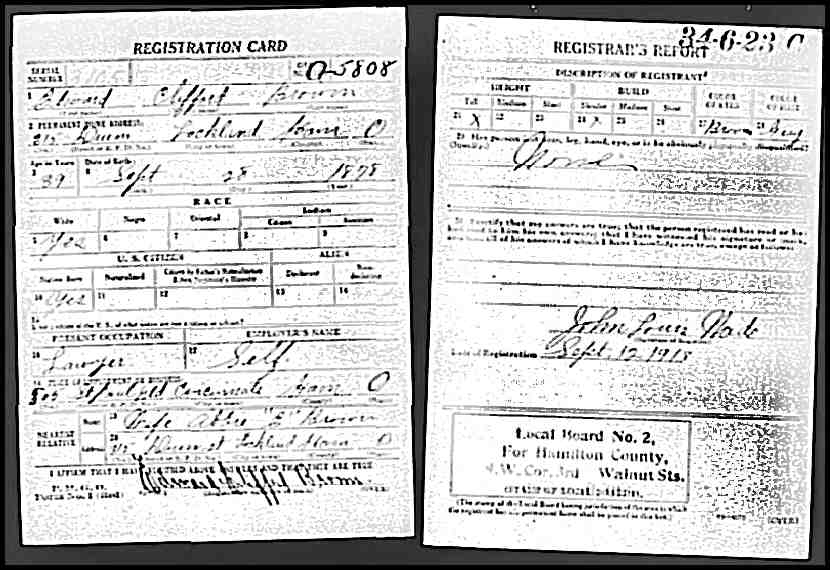 REGISTRATION CARD
SERIAL NUMBER 3105 O-5808
1 Edward Clifford Brown
2 PERMANENT HOME ADDRESS:
315 Dunn Lockland Ham O
Age in Years Date of Birth
39 Sept 28 1878
RACE
White Negro Oriental Indian
Citizen
5 Yes 6 7 8 9
U. S. CITIZEN ALIEN
Native Born Naturalized Citizen by Father's Naturalization Declarant Non-declarant
10 Yes 11 12 13 14
PRESENT OCCUPATION EMPLOYER'S NAME
16 Lawyer 17 Self
PLACE OF EMPLOYMENT OR BUSINESS
St Paul Bld Cincinnati Ham O
NEAREST RELATIVE
Name 19 Wife Abbie "E" Brown
Address 20 Dunn st Lockland Ham O
I AFFIRM THAT I HAVE VERIFIED ABOVE ANSWERS AND THAT THEY ARE TRUE
Edward Clifford Brown
(OVER)
34-6-23 C
REGISTRAR'S REPORT
DESCRIPTION OF REGISTRANT
HEIGHT BUILD COLOR OF EYES COLOR OF HAIR
Tall Medium Short Slender Medium Stout
21 X 22 23 24 X 25 26 27 Brown 28 Gray
29 Has person lost arm, leg, hand, eye, or is he obviously physically disqualified?
(Specify.) None
30 I certify that my answers are true; that the person registered has read or has
had read to him his own answers; that I have witnessed his signature or mark,
and that all of his answers of which I have knowledge are true, except as follows:
John Louis Wade
Date of Registration Sept. 12, 1918
Local Board No. 2,
For Hamilton County,
N.W. Cor. 3rd Walnut Sts.
(STAMP OF LOCAL BOARD)
(The stamp of the Local Board having jurisdiction of the area in which
the registrant has his permanent home shall be placed in this box.)
(OVER)